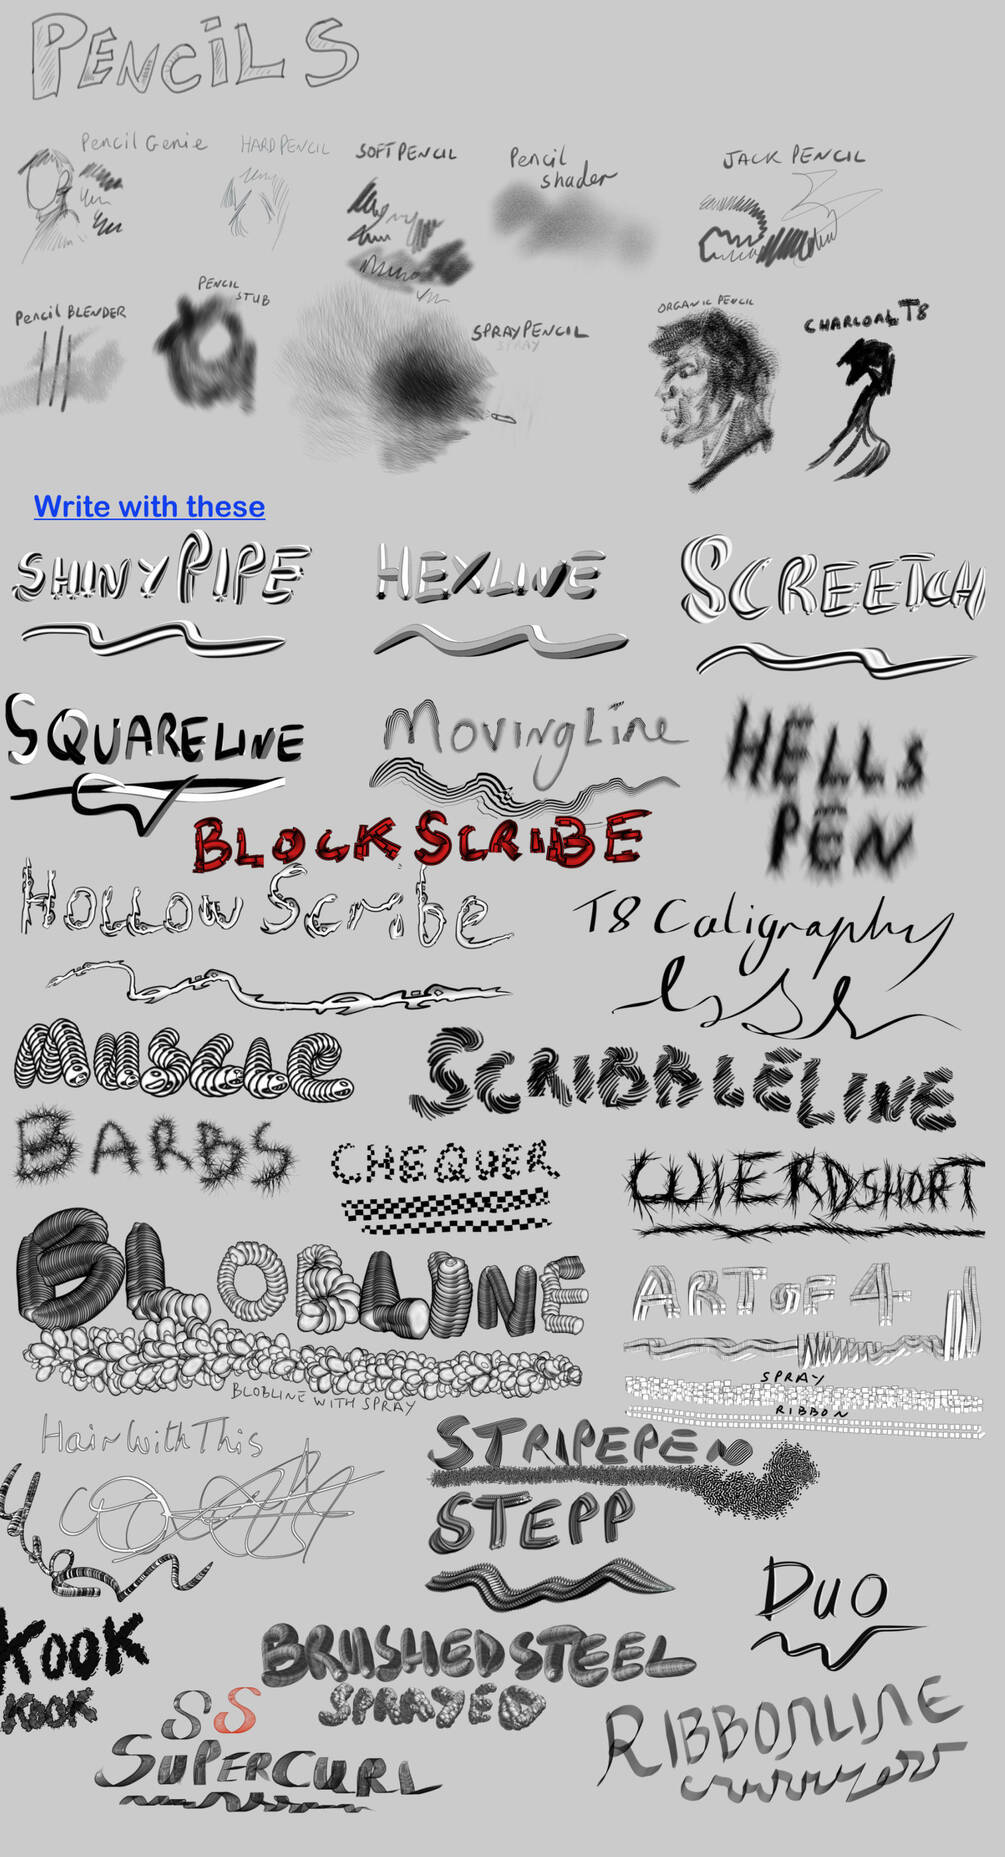 PENCiLS
Pencil Genie
HARD PENCIL
SOFT PENCIL
Pencil
shader
JACK PENCIL
Pencil BLENDER
PENCIL
STUB
SPRAY PENCIL
SPRAY
ORGANIC PENCIL
CHARCOAL T8
Write with these
SHINY PIPE
HEXLINE
SCREETCH
SQUARELINE
MovingLine
HELLS
PEN
BLOCK SCRIBE
Hollow Scribe
T8 Caligraphy
MUSCLE
SCRIBBLELINE
BARBS
CHEQUER
WIERDSHORT
BLOBLINE
BLOBLINE WITH SPRAY
ART OF 4
SPRAY
RIBBON
HairWithThis
STRIPEPEN
STEPP
DUO
KOOK
KOOK
BRUSHEDSTEEL
SPRAYED
S S
SUPERCURL
RIBBONLINE